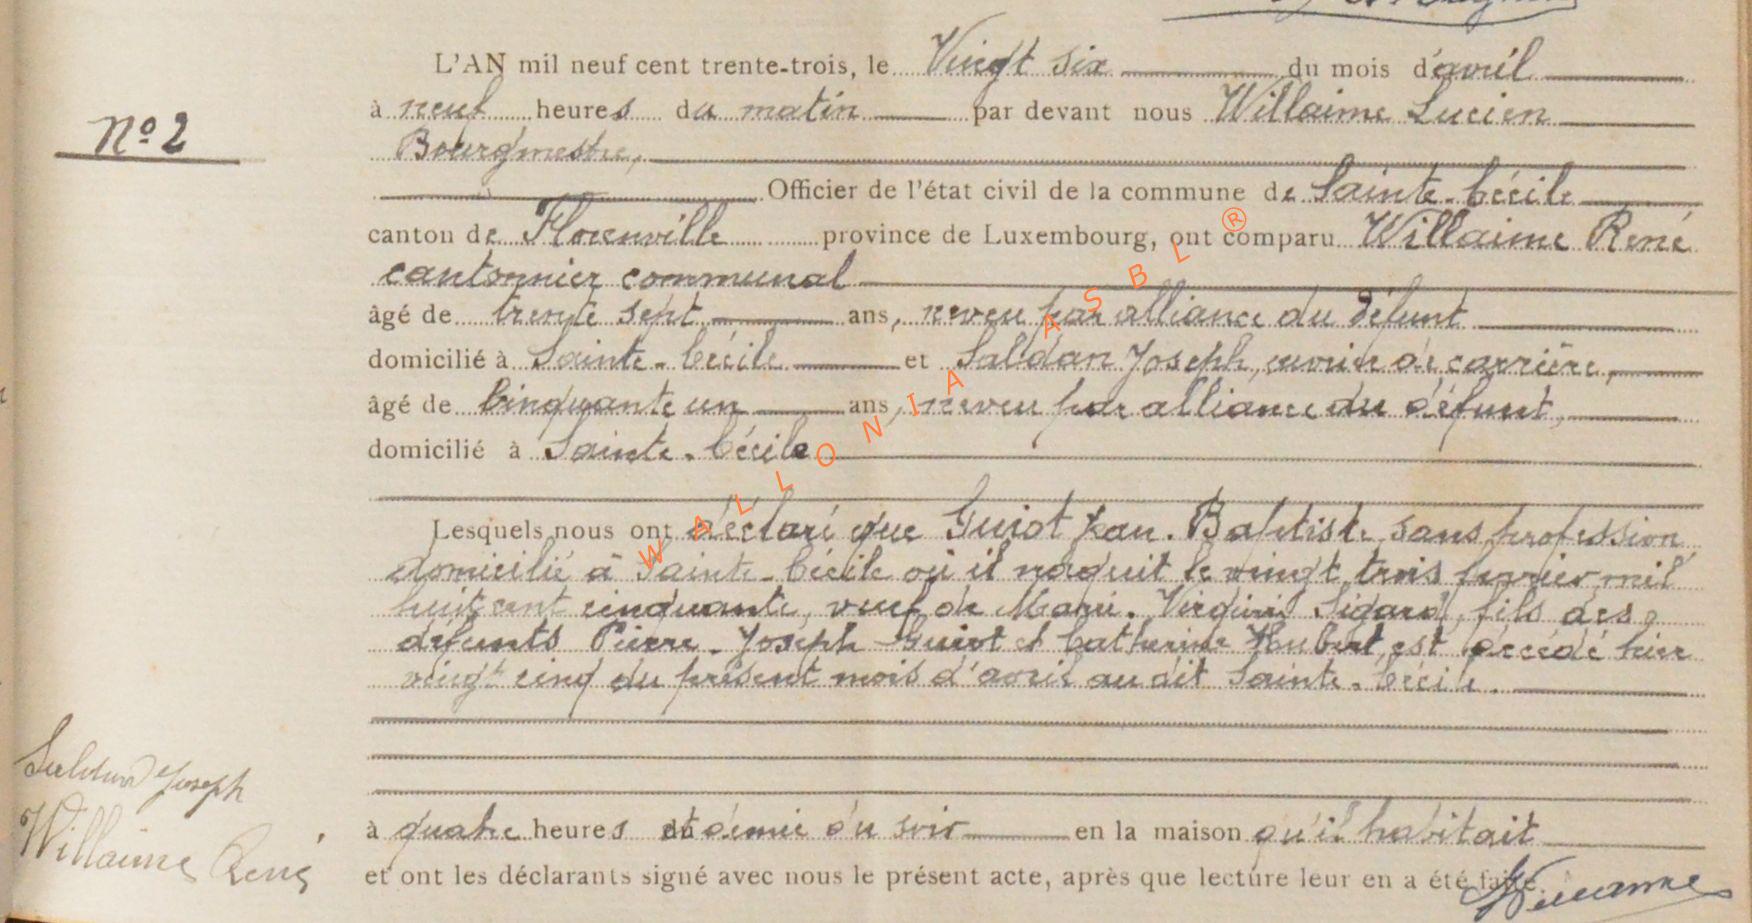 L'AN mil neuf cent trente-trois, le Vingt six du mois d'avril
à neuf heures du matin par devant nous Willaime Lucien
Nº 2
Bourgmestre,
Officier de l'état civil de la commune de Sainte-Cécile
canton de Florenville province de Luxembourg, ont comparu Willaime René
cantonnier communal
âgé de trente sept ans, neveu par alliance du défunt
domicilié à Sainte-Cécile et Saldan Joseph, ouvrier de carrière,
âgé de Cinquante un ans, neveu par alliance du défunt,
domicilié à Sainte-Cécile
Lesquels nous ont déclaré que Guiot Jean-Baptiste, sans profession
domicilié à Sainte-Cécile où il naquit le vingt trois février mil
huit cent cinquante, veuf de Marie-Virginie Sigard, fils des
défunts Pierre-Joseph Guiot et Catherine Hubert, est décédé hier
vingt cinq du présent mois d'avril au dit Sainte-Cécile.
à quatre heures et demie du soir en la maison qu'il habitait
et ont les déclarants signé avec nous le présent acte, après que lecture leur en a été faite.
Joseph
Willaime René
Willaime
WALLONIA ASBL ®